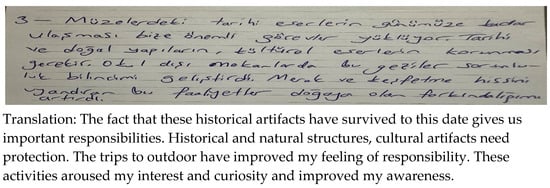 3 — Müzelerdeki tarihi eserlerin günümüze kadar
ulaşması bize önemli görevler yüklüyor. Tarihi
ve doğal yapıların, kültürel eserlerin korunması
gerekir. Okul dışı mekanlarda bu geziler sorumlu-
luk bilincimi geliştirdi. Merak ve keşfetme hissimi
uyandıran bu faaliyetler doğaya olan farkındalığımı
artırdı.
Translation: The fact that these historical artifacts have survived to this date gives us
important responsibilities. Historical and natural structures, cultural artifacts need
protection. The trips to outdoor have improved my feeling of responsibility. These
activities aroused my interest and curiosity and improved my awareness.